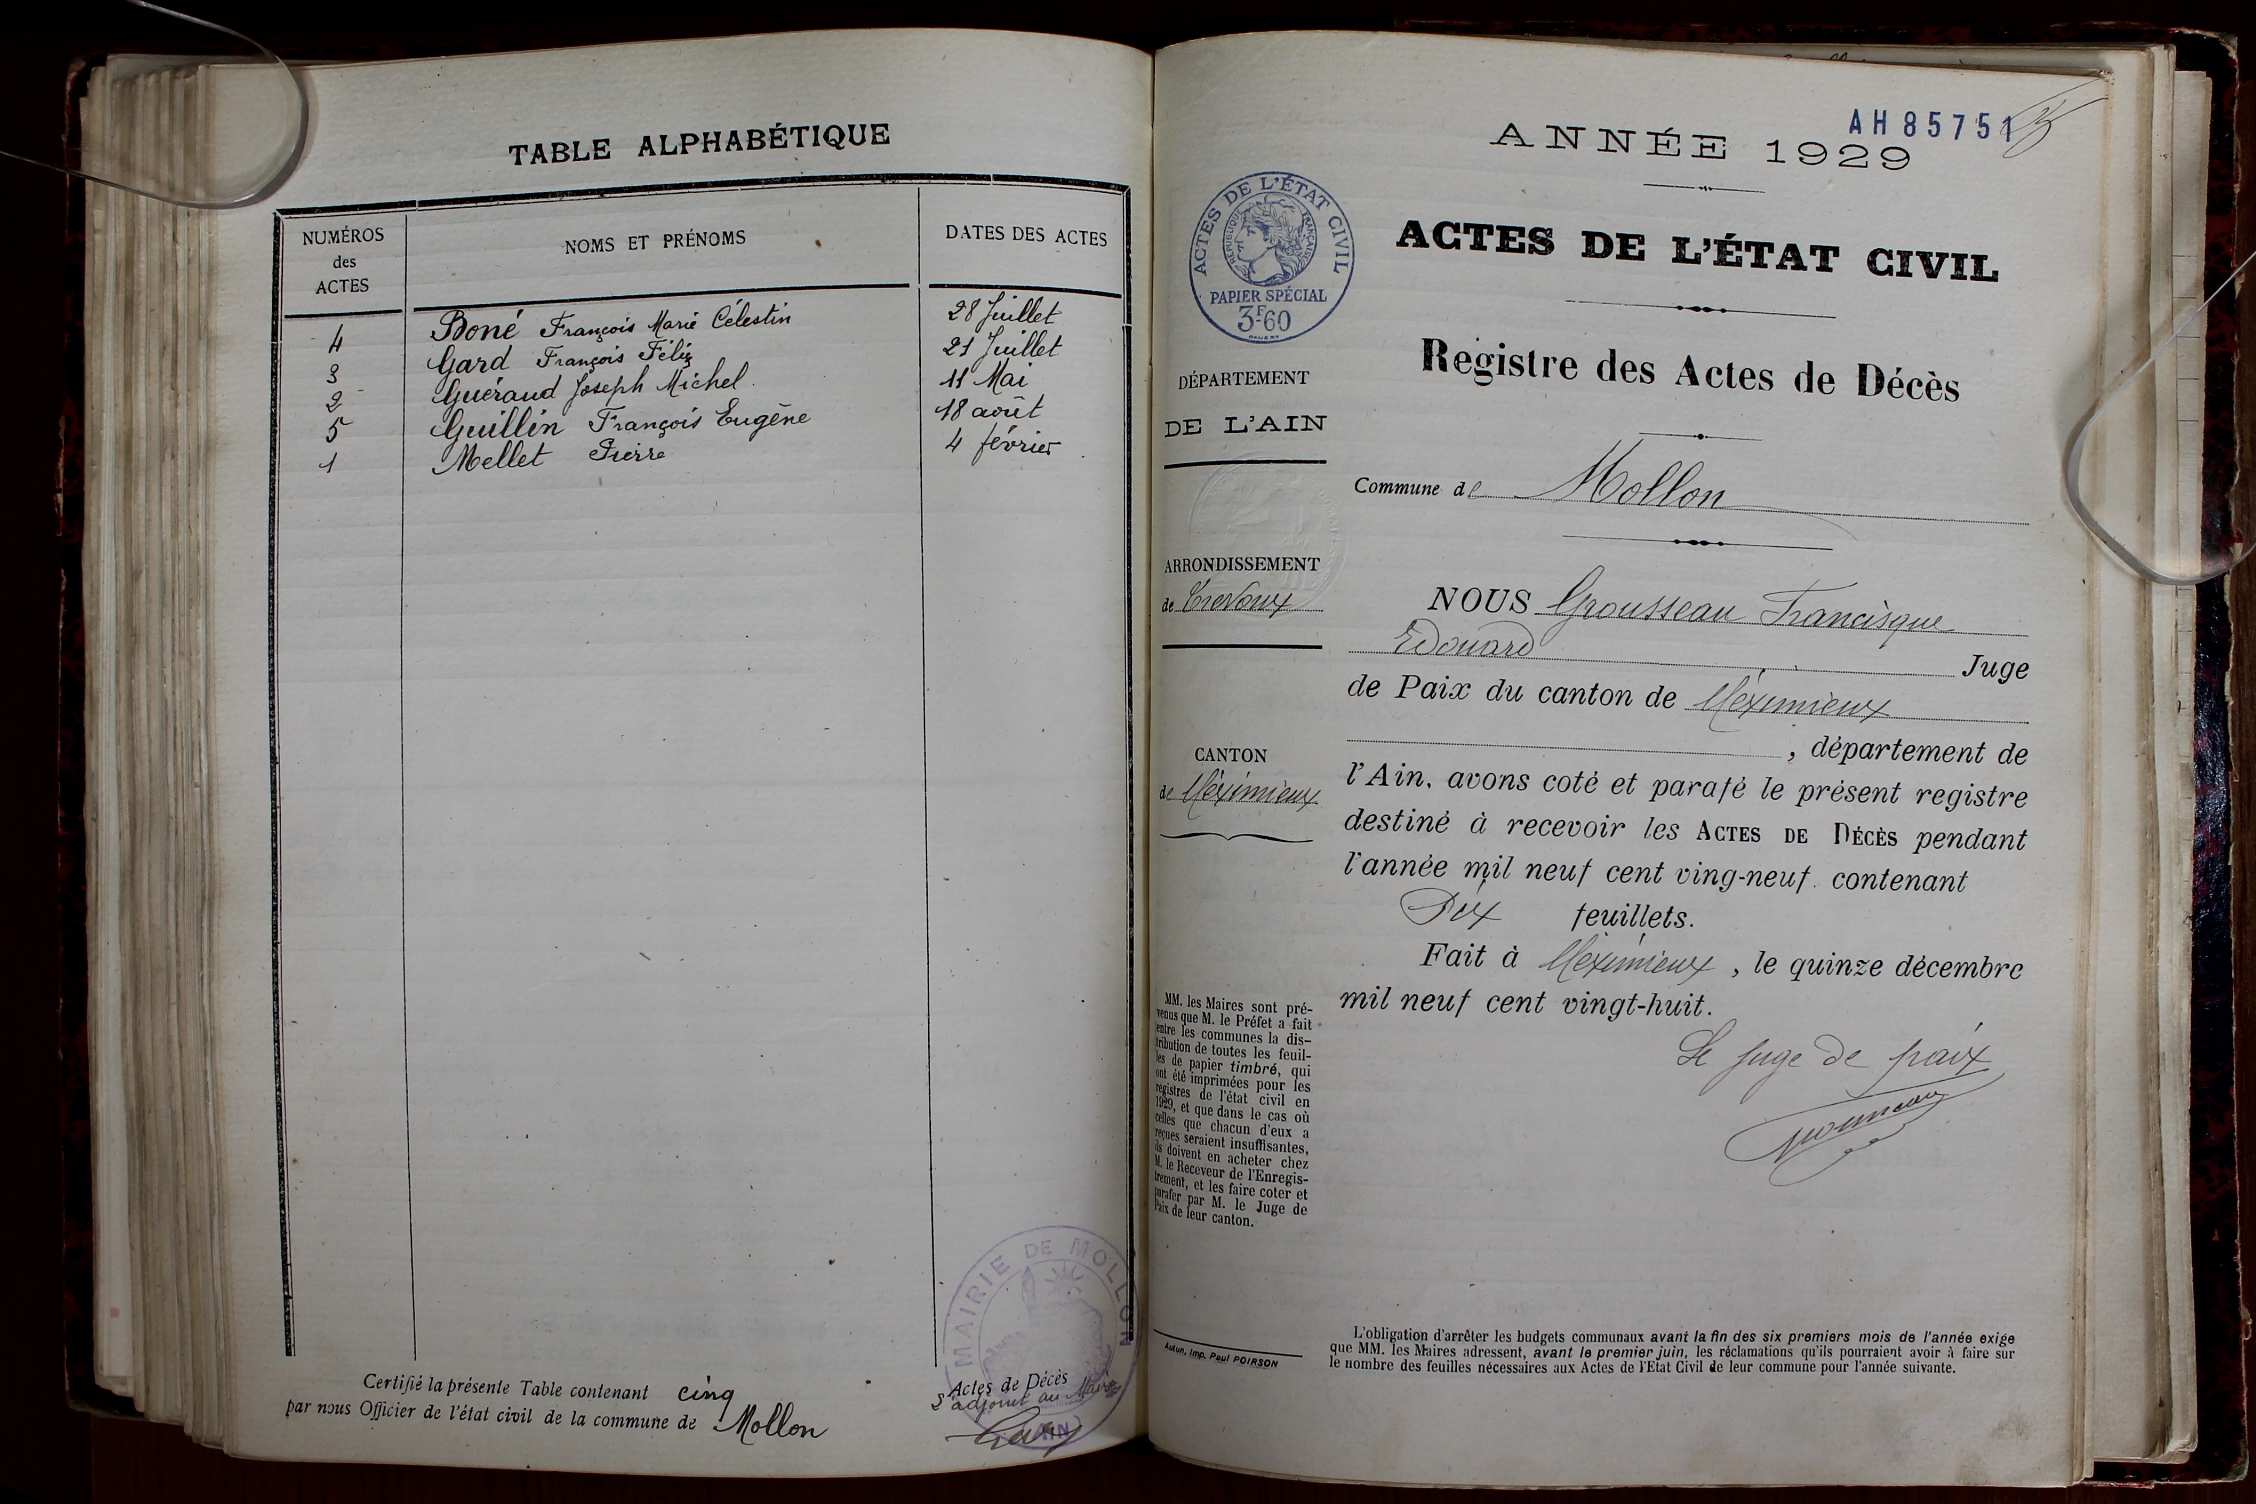 TABLE ALPHABÉTIQUE
NUMÉROS
des
ACTES
NOMS ET PRÉNOMS
DATES DES ACTES
4 Boné François Marie Célestin 28 Juillet
3 Gard François Félix 21 Juillet
2 Guéraud Joseph Michel 11 Mai
5 Guillin François Eugène 18 août
1 Mellet Pierre 4 février
Certifié la présente Table contenant cinq Actes de Décès
par nous Officier de l'état civil de la commune de Mollon
L'adjoint au Maire
MAIRIE DE MOLLON
(AIN)
AH85751
ANNÉE 1929
ACTES DE L'ÉTAT CIVIL
RÉPUBLIQUE FRANÇAISE
PAPIER SPÉCIAL
3F60
ACTES DE L'ÉTAT CIVIL
Registre des Actes de Décès
DÉPARTEMENT
DE L'AIN
Commune de Mollon
ARRONDISSEMENT
de Trévoux
CANTON
de Méximieux
NOUS Grousseau Francisque
Edouard Juge
de Paix du canton de Méximieux
, département de
l'Ain, avons coté et parafé le présent registre
destiné à recevoir les ACTES DE DÉCÈS pendant
l'année mil neuf cent ving-neuf. contenant
Dix feuillets.
Fait à Méximieux, le quinze décembre
mil neuf cent vingt-huit.
Le Juge de paix
MM. les Maires sont pré-
venus que M. le Préfet a fait
entre les communes la dis-
tribution de toutes les feuil-
les de papier timbré, qui
ont été imprimées pour les
registres de l'état civil en
1929, et que dans le cas où
celles que chacun d'eux a
reçues seraient insuffisantes,
ils doivent en acheter chez
M. le Receveur de l'Enregis-
trement, et les faire coter et
parafer par M. le Juge de
Paix de leur canton.
Autun, Imp. Paul POIRSON
L'obligation d'arrêter les budgets communaux avant la fin des six premiers mois de l'année exige
que MM. les Maires adressent, avant le premier juin, les réclamations qu'ils pourraient avoir à faire sur
le nombre des feuilles nécessaires aux Actes de l'Etat Civil de leur commune pour l'année suivante.